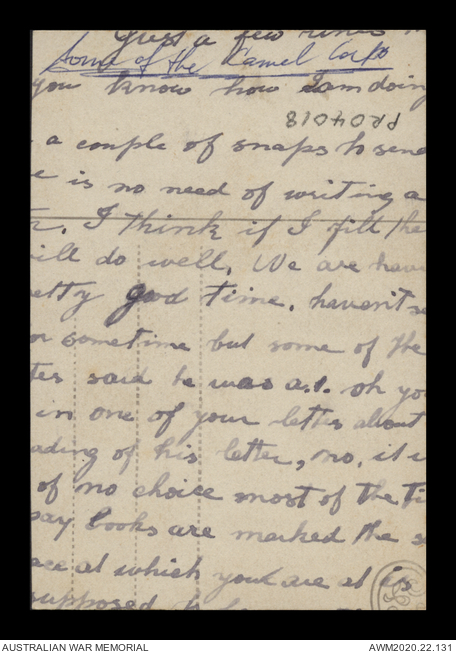 Just a few lines
Some of the Camel Corps
you know how I am doing
PR04018
a couple of snaps to send
e is no need of writing a
I think if I fill the
ill do well, We are hav
etty good time. haven't se
or sometime but some of the
tes said he was a.1. oh you
in one of your letters about
ading of his letter, no, it i
of no choice most of the ti
pay books are marked the s
ace at which you are at is
supposed
AUSTRALIAN WAR MEMORIAL
AWM2020.22.131